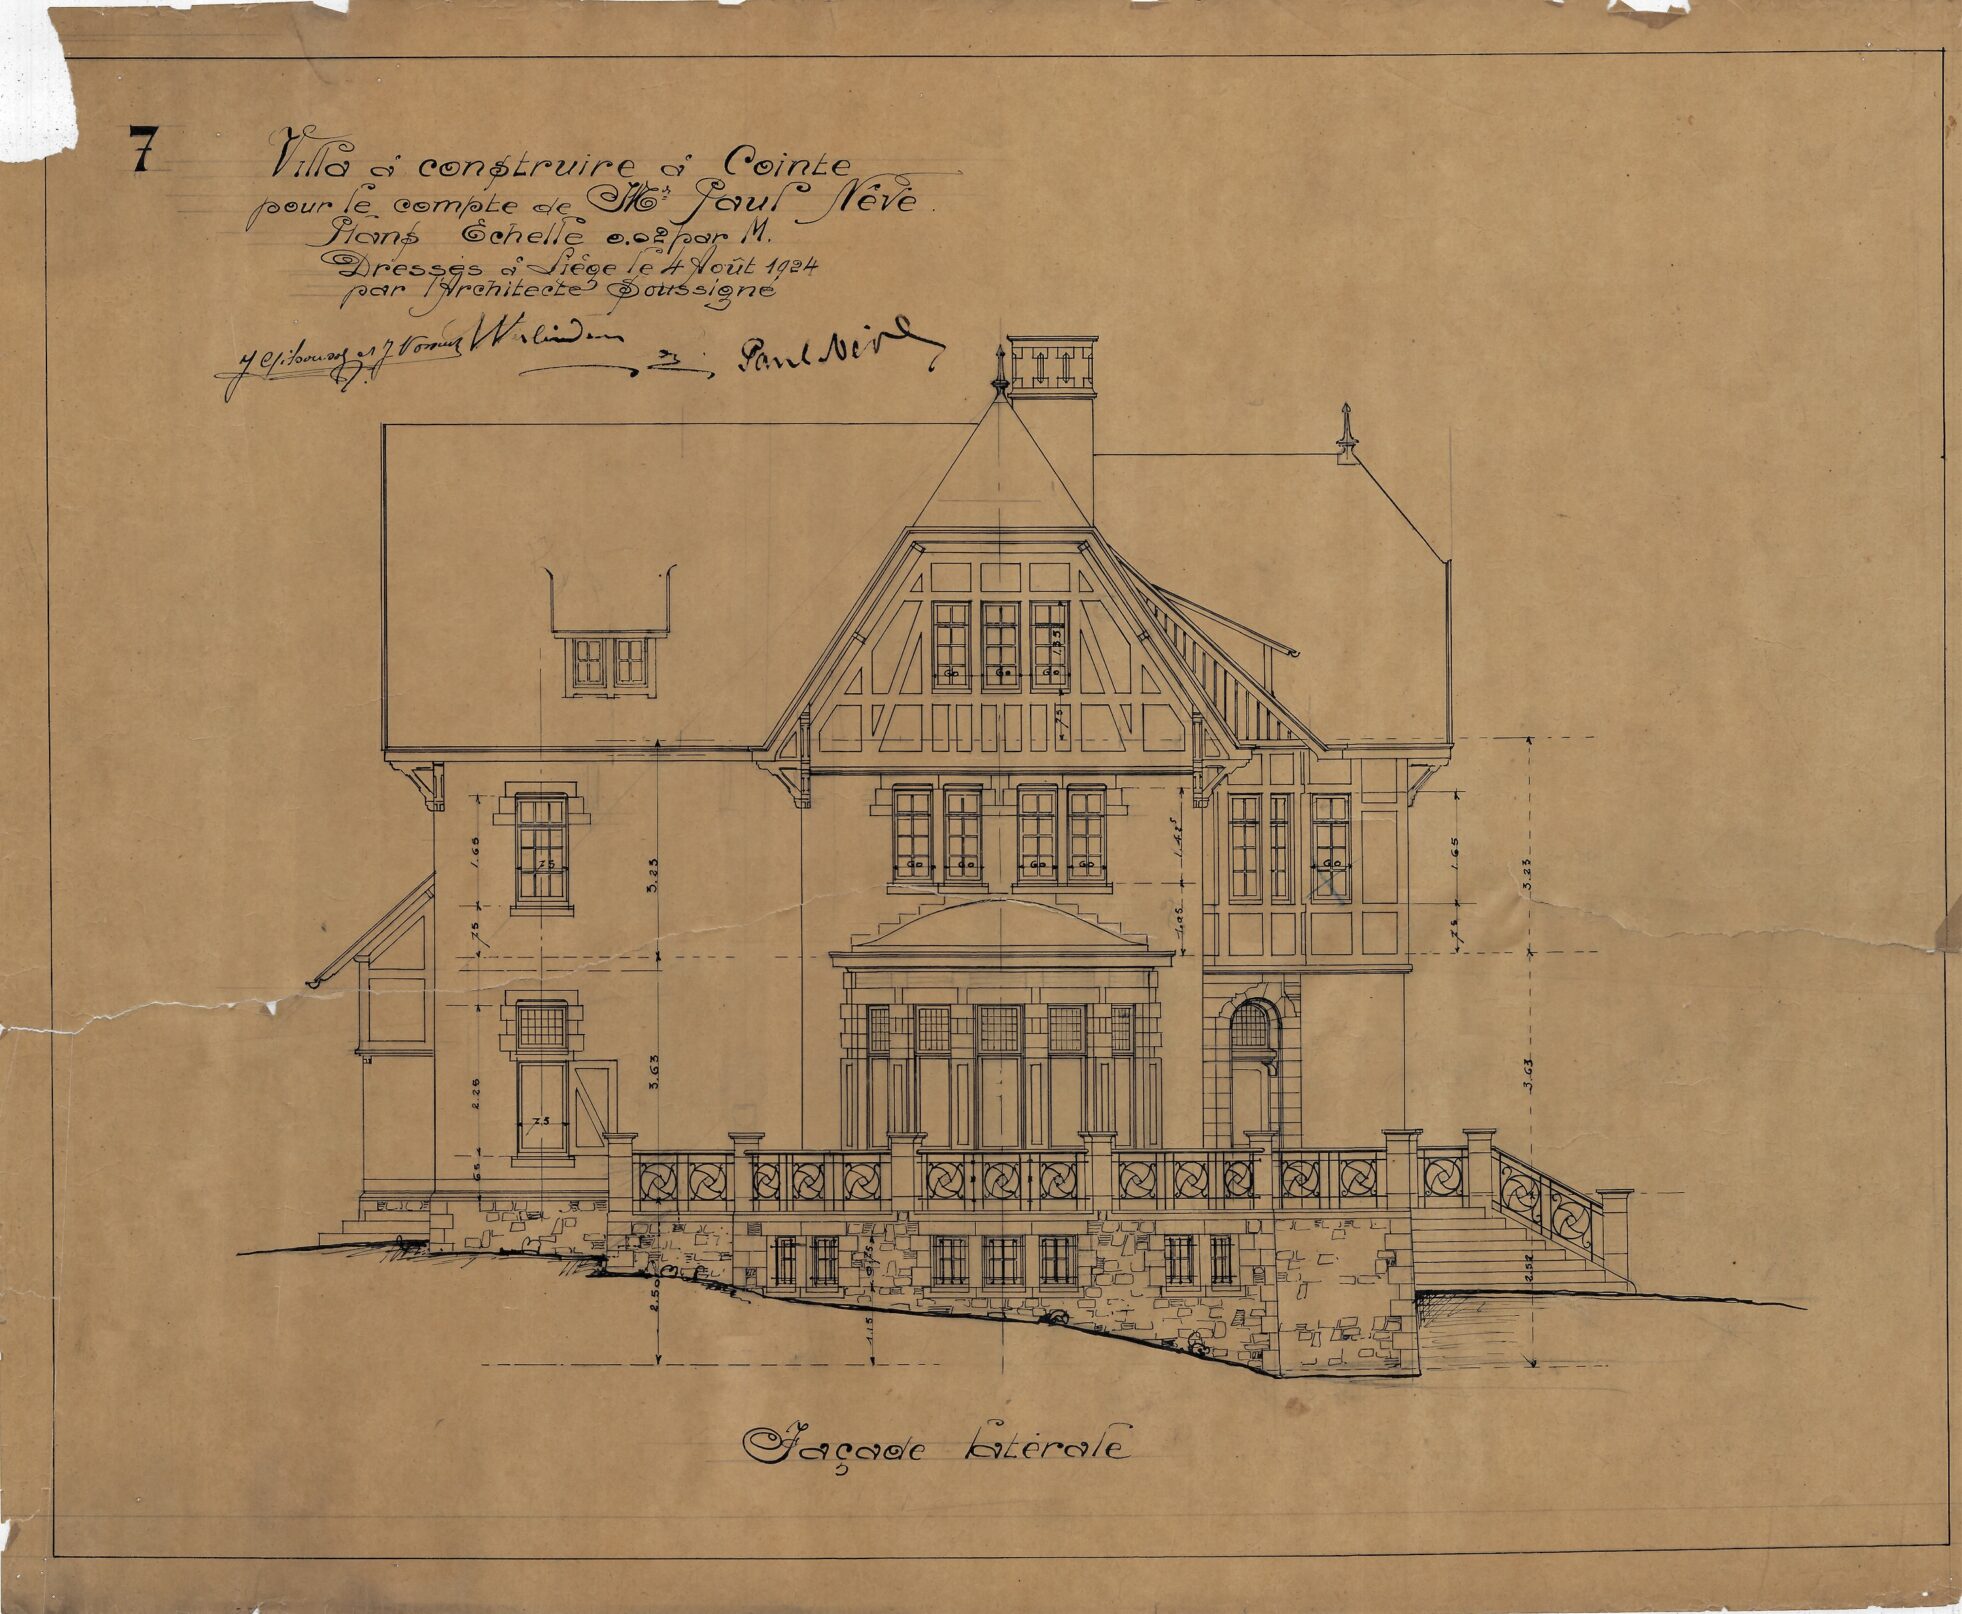 7
Villa à construire à Cointe
pour le compte de Mr Paul Nève.
Plans Echelle 0.02 par M.
Dressés à Liège le 4 Août 1924
par l'Architecte Soussigné
Paul Nève
1.35
Go Go Go
75
1.65
75
3.23
Go Go Go Go
1.42⁵
Go
1.65
3.23
75
1.05
75
2.25
3.63
3.63
75
65
2.50
0.75
1.15
2.52
Façade latérale